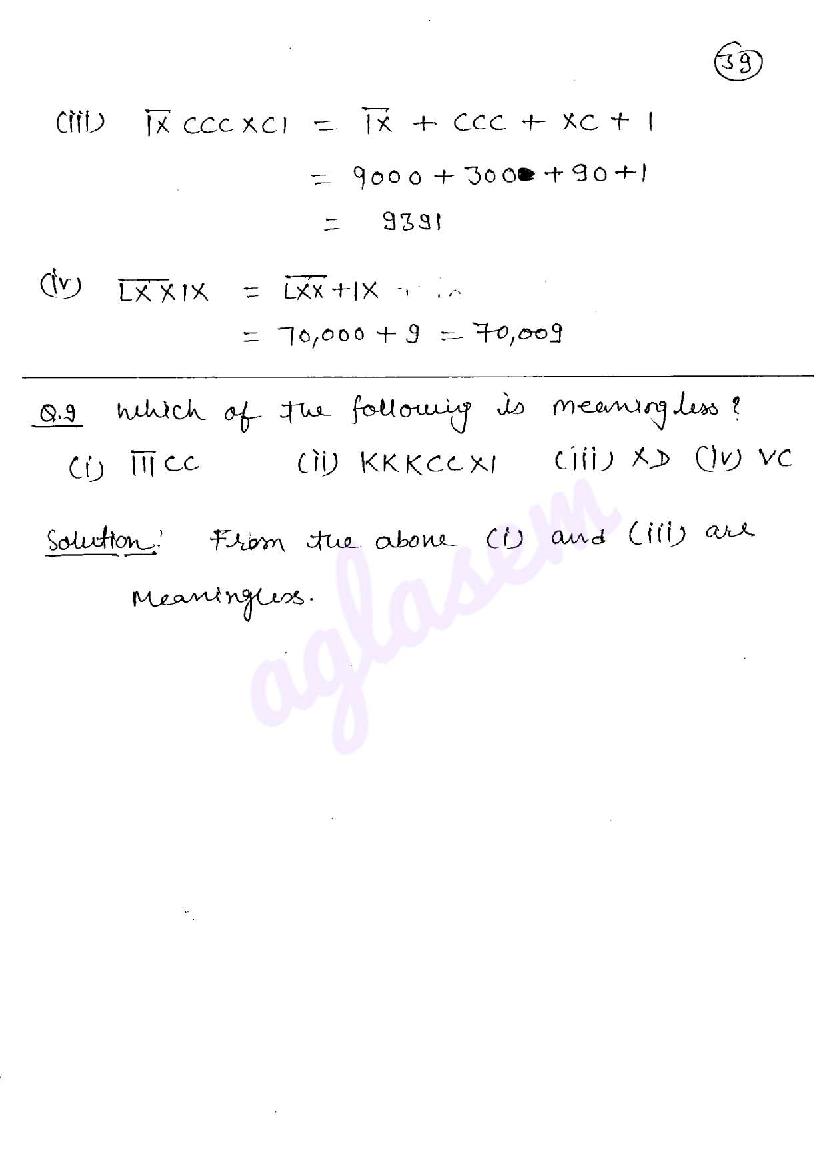 39
(iii) I̅X̅ CCC XCI = I̅X̅ + CCC + XC + I
= 9000 + 300 + 90 + 1
= 9391
(iv) L̅X̅X̅IX = L̅X̅X̅ + IX
= 70,000 + 9 = 70,009
Q.9 Which of the following is meaningless?
(i) I̅I̅I̅CC (ii) KKKCCXI (iii) XD (iv) VC
Solution: From the above (i) and (iii) are
Meaningless.
aglasem